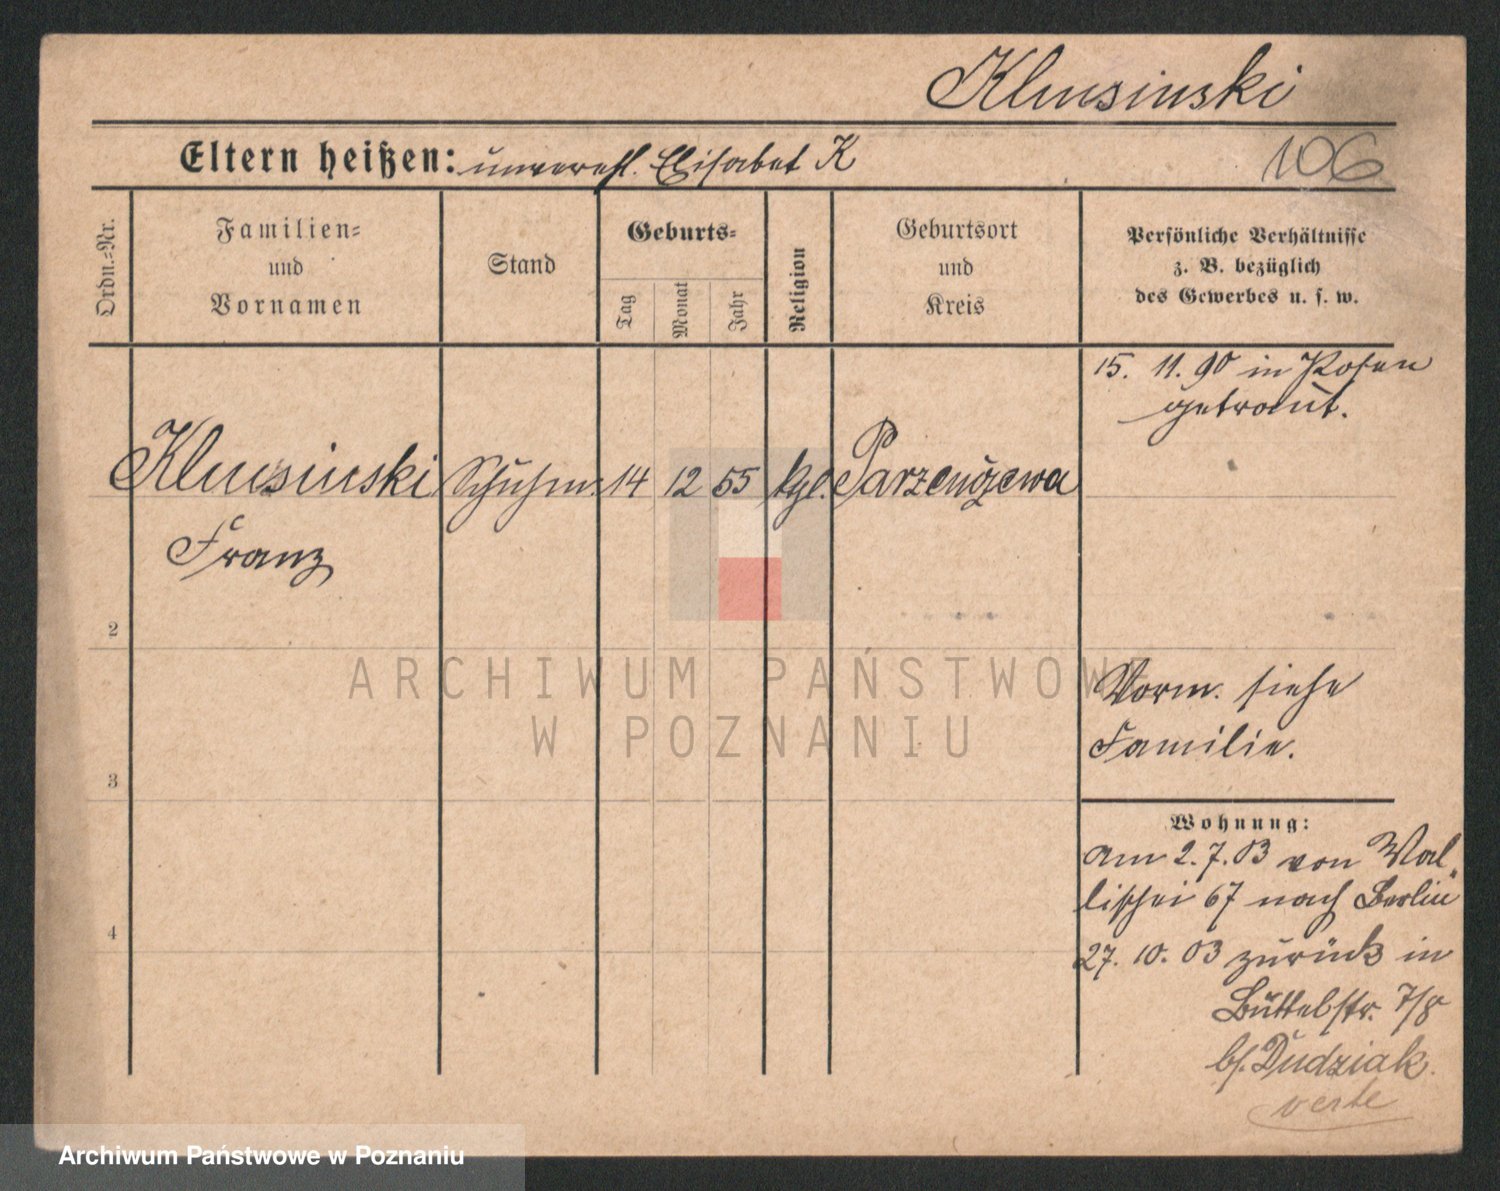 Klusinski
Eltern heißen: unverehl. Elisabet K
106
Ordn.-Nr.
Familien-
und
Vornamen
Stand
Geburts-
Tag
Monat
Jahr
Religion
Geburtsort
und
Kreis
Persönliche Verhältnisse
z. B. bezüglich
des Gewerbes u. s. w.
15. 11. 90 in Posen
getraut.
Klusinski Schuhm. 14 12 55 kgl.
Franz
2
Vorm. siehe
Familie.
3
Wohnung:
am 2. 7. 03 von Wal„
lischei 67 nach Berlin
4
27. 10. 03 zurück in
Büttelstr. 7/8
bf. Dudziak.
verte
ARCHIWUM PAŃSTWOWE
W POZNANIU
Archiwum Państwowe w Poznaniu